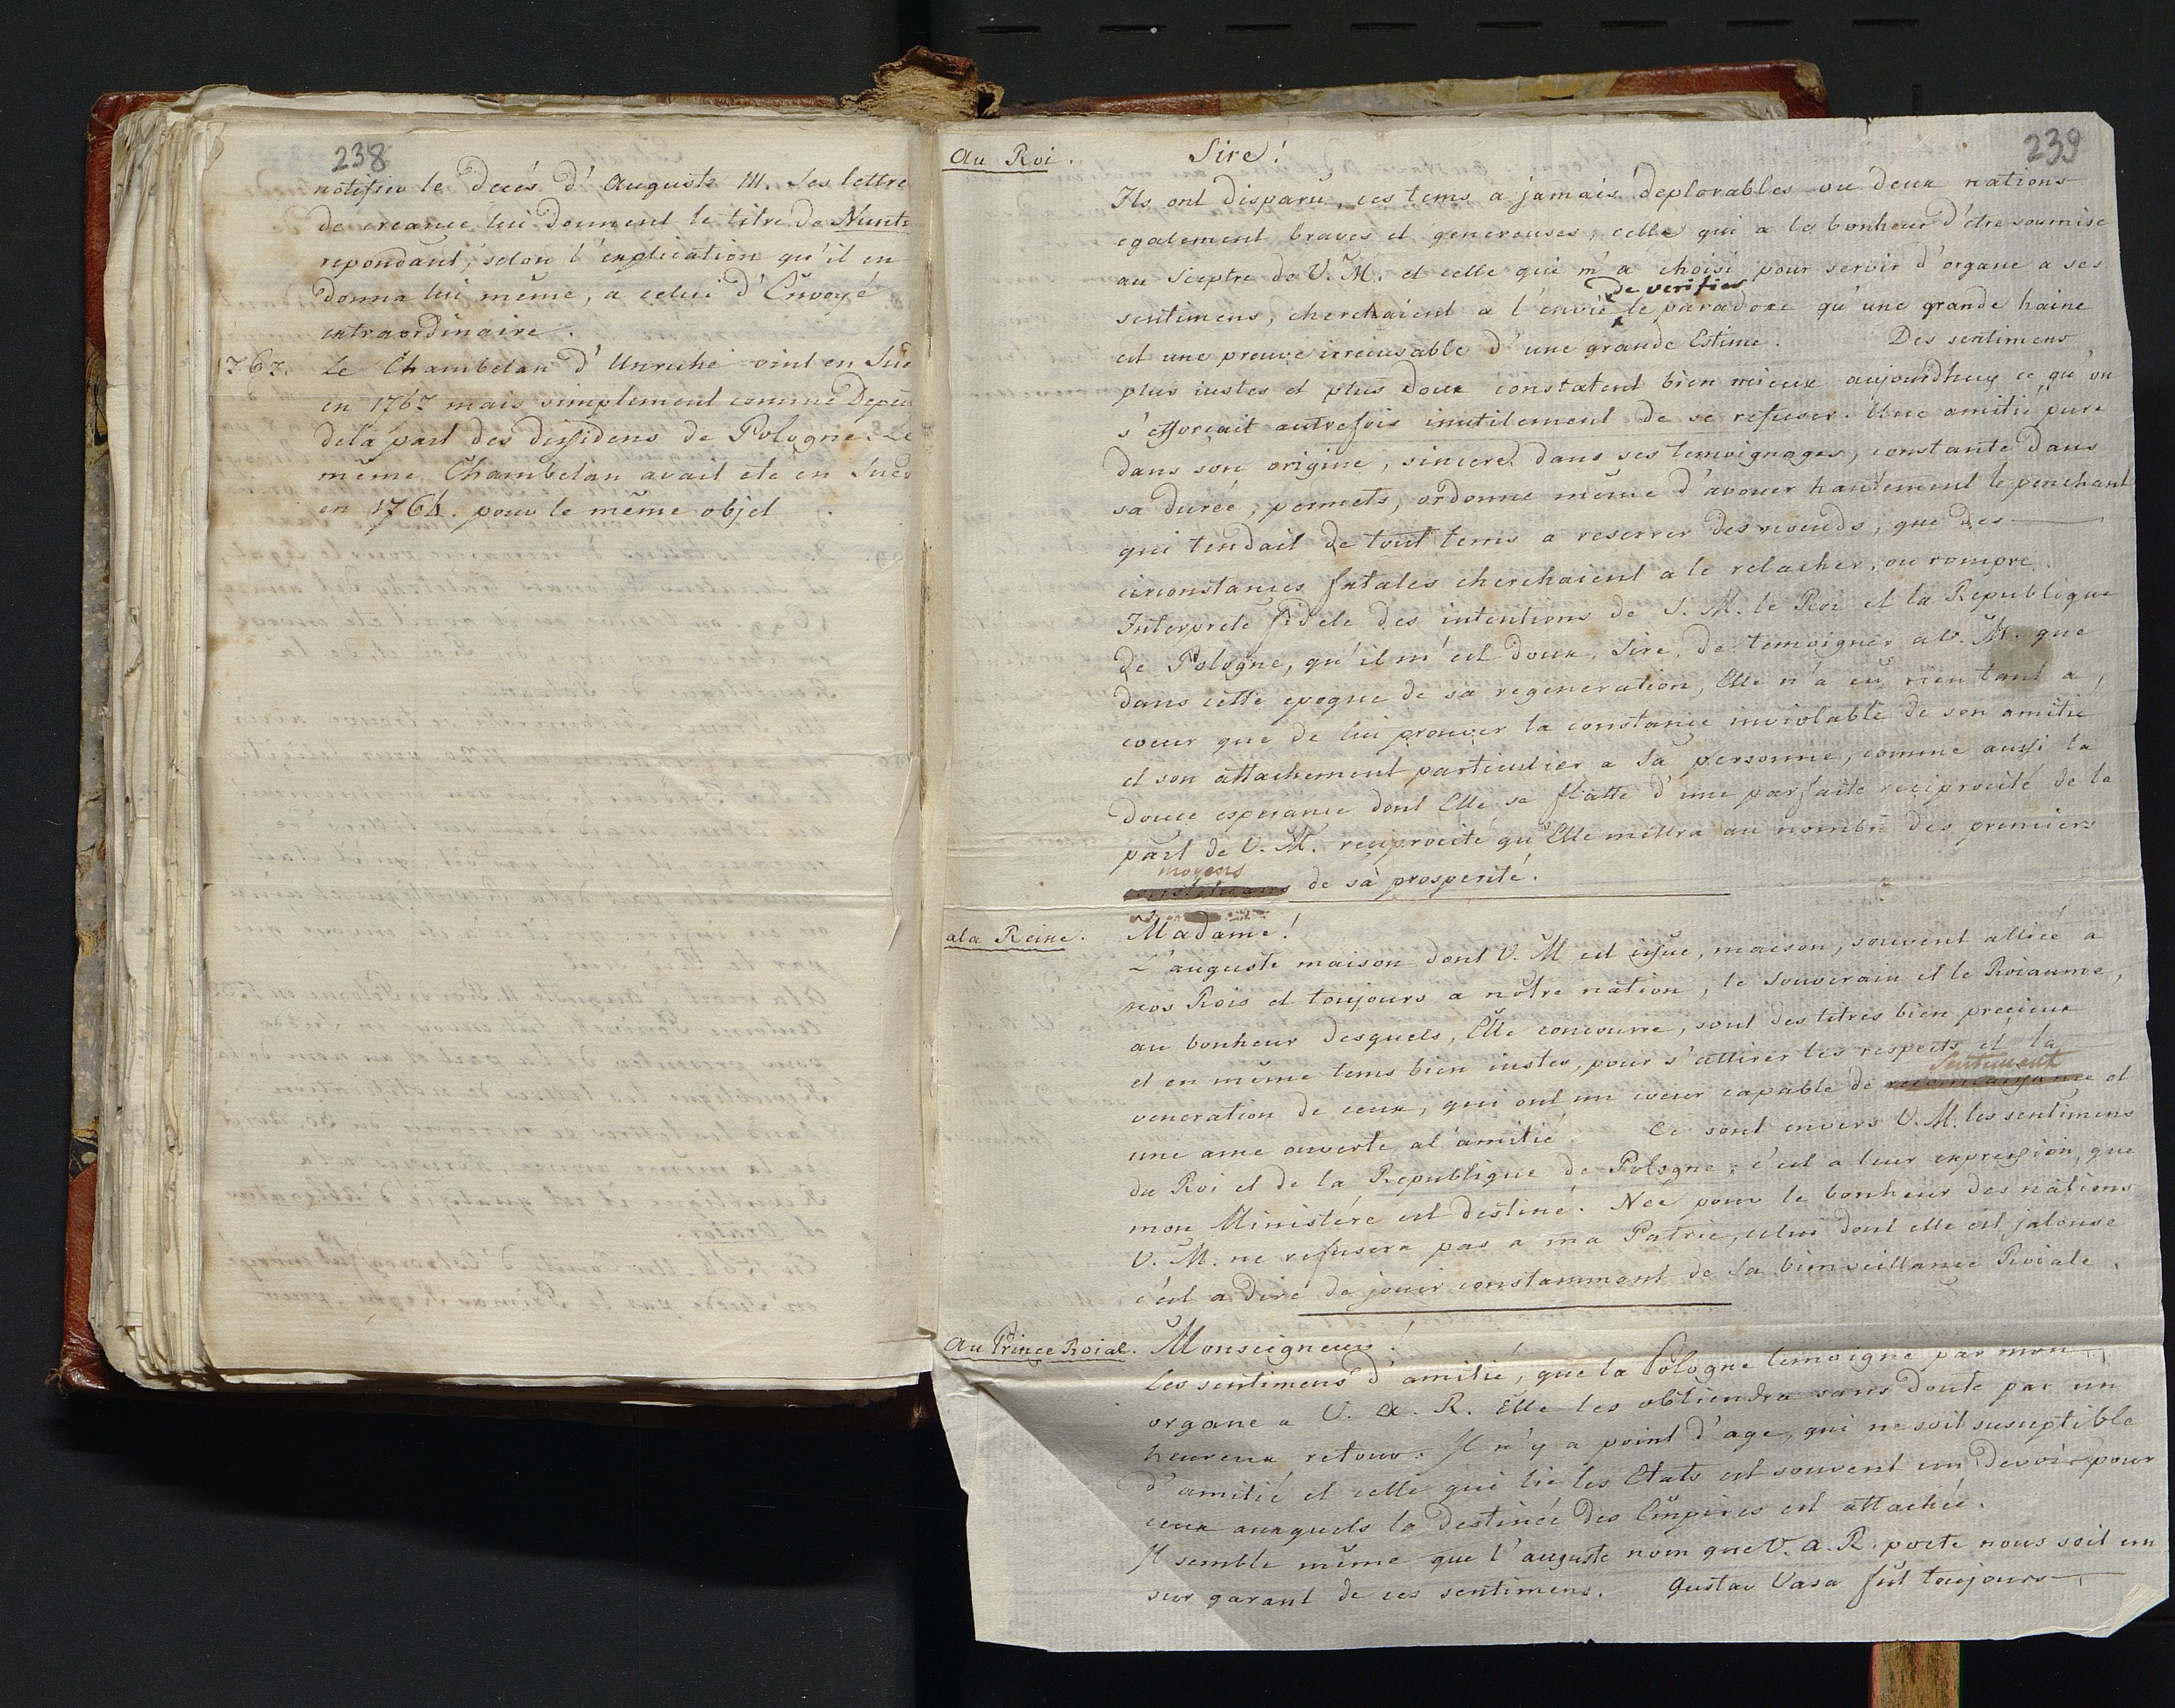 238
notifier le decés d'Auguste III. Ses lettre
de creance lui donnent le titre de Nunti
repondant, selon l'explication qu'il en
donna lui même, a celui d'Envoyé
extraordinaire.
1767. Le Chambelan d'Unruhe vint en Sue
en 1767 mais simplement comme Depu
dela part des dissidens de Pologne. Le
même Chambelan avait ete en Sued
en 1764. pour le même objet.
239
Au Roi. Sire!
Ils ont disparu, ces tems a jamais deplorables ou deux nations
egalement braves et genereuses, celle qui a le bonheur d'etre soumise
au Sceptre de V. M. et celle qui m'a choisi pour servir d'organe a ses
de verifier
sentimens, cherchaient a l'envie le paradoxe qu'une grande haine
est une preuve irrecusable d'une grande Estime. Des sentimens
plus iustes et plus doux constatent bien mieux aujourdhuy ce qu'on
s'efforcait autrefois inutilement de se refuser. Une amitié pure
dans son origine, sincere dans ses temoignages, constante dans
sa durée, permets, ordonne même d'avouer hautement le penchant
qui tendait de tout tems a reserrer des noeuds, que des
circonstances fatales cherchaient a le relacher, ou rompre.
Interprete fidele des intentions de S. M. le Roi et la Republique
de Pologne, qu'il m'est doux, Sire, de temoigner a V. M. que
dans cette epoque de sa regeneration, Elle n'a eu rien tant a
coeur que de lui prouver la constance inviolable de son amitie
et son attachement particulier a Sa personne, comme aussi la
douce esperance dont Elle se flatte d'une parfaite reciprocité de la
part de V. M. reciprocité qu'Elle mettra au nombre des premiers
moyens
de sa prosperité.
ala Reine. Madame!
L'auguste maison dont V. M est issue, maison, souvent alliée a
nos Rois et toujours a nôtre nation, le Souverain et le Roiaume,
au bonheur desquels, Elle concourre, sont des titres bien precieux
et en même tems bien iustes, pour s'attirer les respects et la
Sentiment
veneration de ceux, qui ont un coeur capable de reconnaissance et
une ame ouverte al'amitié. Ce sont envers V. M. les sentimens
du Roi et de la Republique de Pologne; c'est a leur expression, que
mon Ministére est destiné. Née pour le bonheur des nations
V. M. ne refusera pas a ma Patrie, celui dont elle est jalouse
c'est a dire de jouir constamment de Sa bienveillance Roiale.
Au Prince Roial. Monseigneur!
Les sentimens d'amitié, que la Pologne temoigne par mon
organe a V. A. R. Elle les obtiendra sans doute par un
heureux retour. Il n'y a point d'age, qui ne soit susceptible
d'amitié et celle qui lie les Etats est souvent un devoir pour
ceux auxquels la destinée des Empires est attachée.
Il semble même que l'auguste nom que V. A. R. porte nous soit un
sur garant de ces sentimens. Gustav Vasa fut toujours